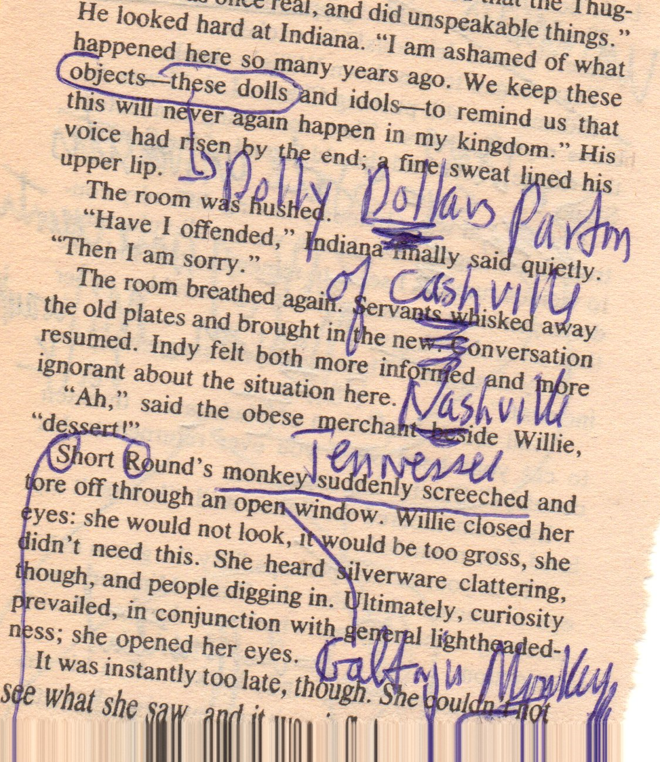 once real, and did unspeakable things.”
He looked hard at Indiana. “I am ashamed of what
happened here so many years ago. We keep these
objects—these dolls and idols—to remind us that
this will never again happen in my kingdom.” His
voice had risen by the end; a fine sweat lined his
upper lip.
Dolly Dollars Parton
The room was hushed.
“Have I offended,” Indiana finally said quietly.
“Then I am sorry.”
of Cashville
The room breathed again. Servants whisked away
the old plates and brought in the new. Conversation
resumed. Indy felt both more informed and more
ignorant about the situation here.
Nashville
“Ah,” said the obese merchant beside Willie,
“dessert!”
Tennessee
Short Round’s monkey suddenly screeched and
tore off through an open window. Willie closed her
eyes: she would not look, it would be too gross, she
didn’t need this. She heard silverware clattering,
though, and people digging in. Ultimately, curiosity
prevailed, in conjunction with general lightheaded-
ness; she opened her eyes.
Monkey
It was instantly too late, though. She couldn’t not
see what she saw, and it